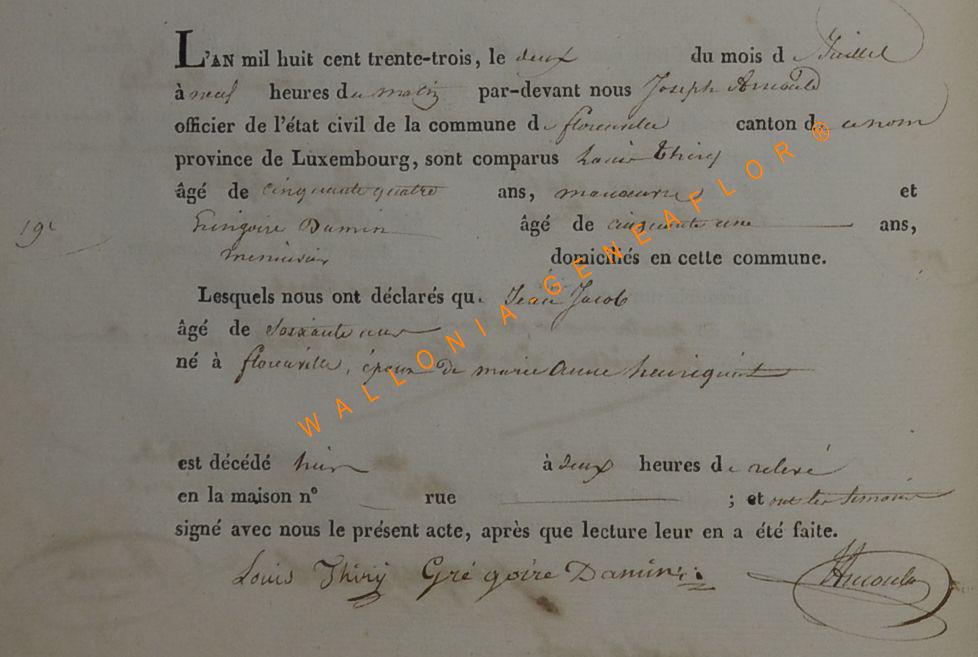 L'AN mil huit cent trente-trois, le deux du mois de Juillet
à neuf heures du matin par-devant nous Joseph Arnould
officier de l'état civil de la commune de florenville canton de ce nom
province de Luxembourg, sont comparus Louis Thiry
âgé de cinquante quatre ans, manoeuvre et
Gringoire Damin âgé de cinquante une ans,
19e
menuisier domiciliés en cette commune.
Lesquels nous ont déclarés que Jean Jacob
âgé de soixante ans
né à florenville, époux de marie Anne henriquet
est décédé hier à deux heures de relevé
en la maison n° rue ; et ont les temoins
signé avec nous le présent acte, après que lecture leur en a été faite.
Louis Thiry Grégoire Damin Arnould
WALLONIA GENEAFLOR ®